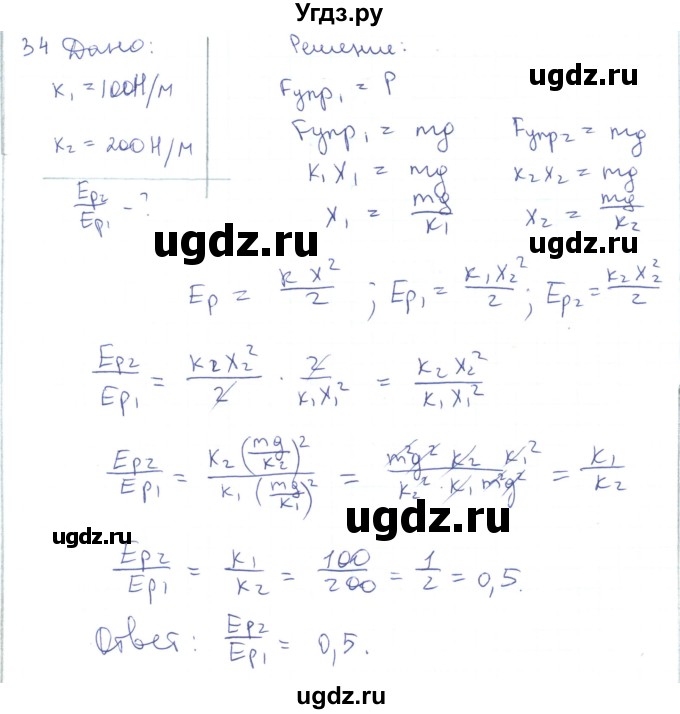 Угдз.ру
34 Дано: Решение:
k₁ = 100Н/м Fупр₁ = P
k₂ = 200Н/м Fупр₁ = mg Fупр₂ = mg
Ep₂/Ep₁ - ? k₁x₁ = mg k₂x₂ = mg
x₁ = mg/k₁ x₂ = mg/k₂
ugdz.ru ugdz.ru
Ep = kx²/2 ; Ep₁ = k₁x₂²/2 ; Ep₂ = k₂x₂²/2
Ep₂/Ep₁ = k₂x₂²/2 · 2/k₁x₁² = k₂x₂²/k₁x₁²
Ep₂/Ep₁ = k₂(mg/k₂)²/k₁(mg/k₁)² = m²g² k₂ k₁²/k₂² · k₁ m²g² = k₁/k₂
ugdz.ru
ugdz.ru
Ep₂/Ep₁ = k₁/k₂ = 100/200 = 1/2 = 0,5.
Ответ: Ep₂/Ep₁ = 0,5.
ugdz.ru
ugdz.ru